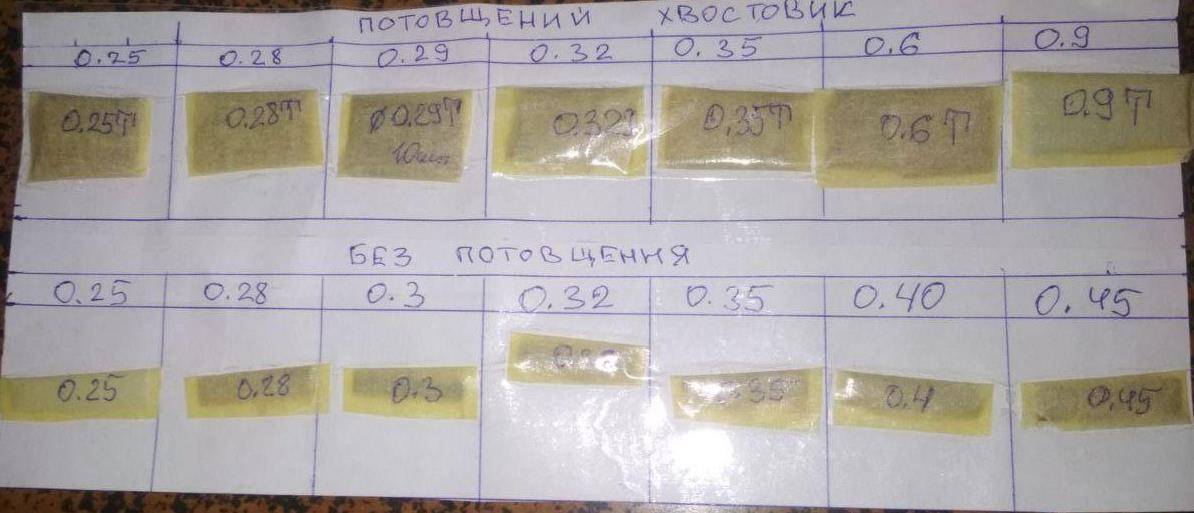 ПОТОВЩЕНИЙ ХВОСТОВИК
0.25 0.28 0.29 0.32 0.35 0.6 0.9
0.25Т 0.28Т Ø0.29Т 0.35Т 0.6Т 0.9Т
10шт
БЕЗ ПОТОВЩЕННЯ
0.25 0.28 0.3 0.32 0.35 0.40 0.45
0.25 0.28 0.3 0.4 0.45